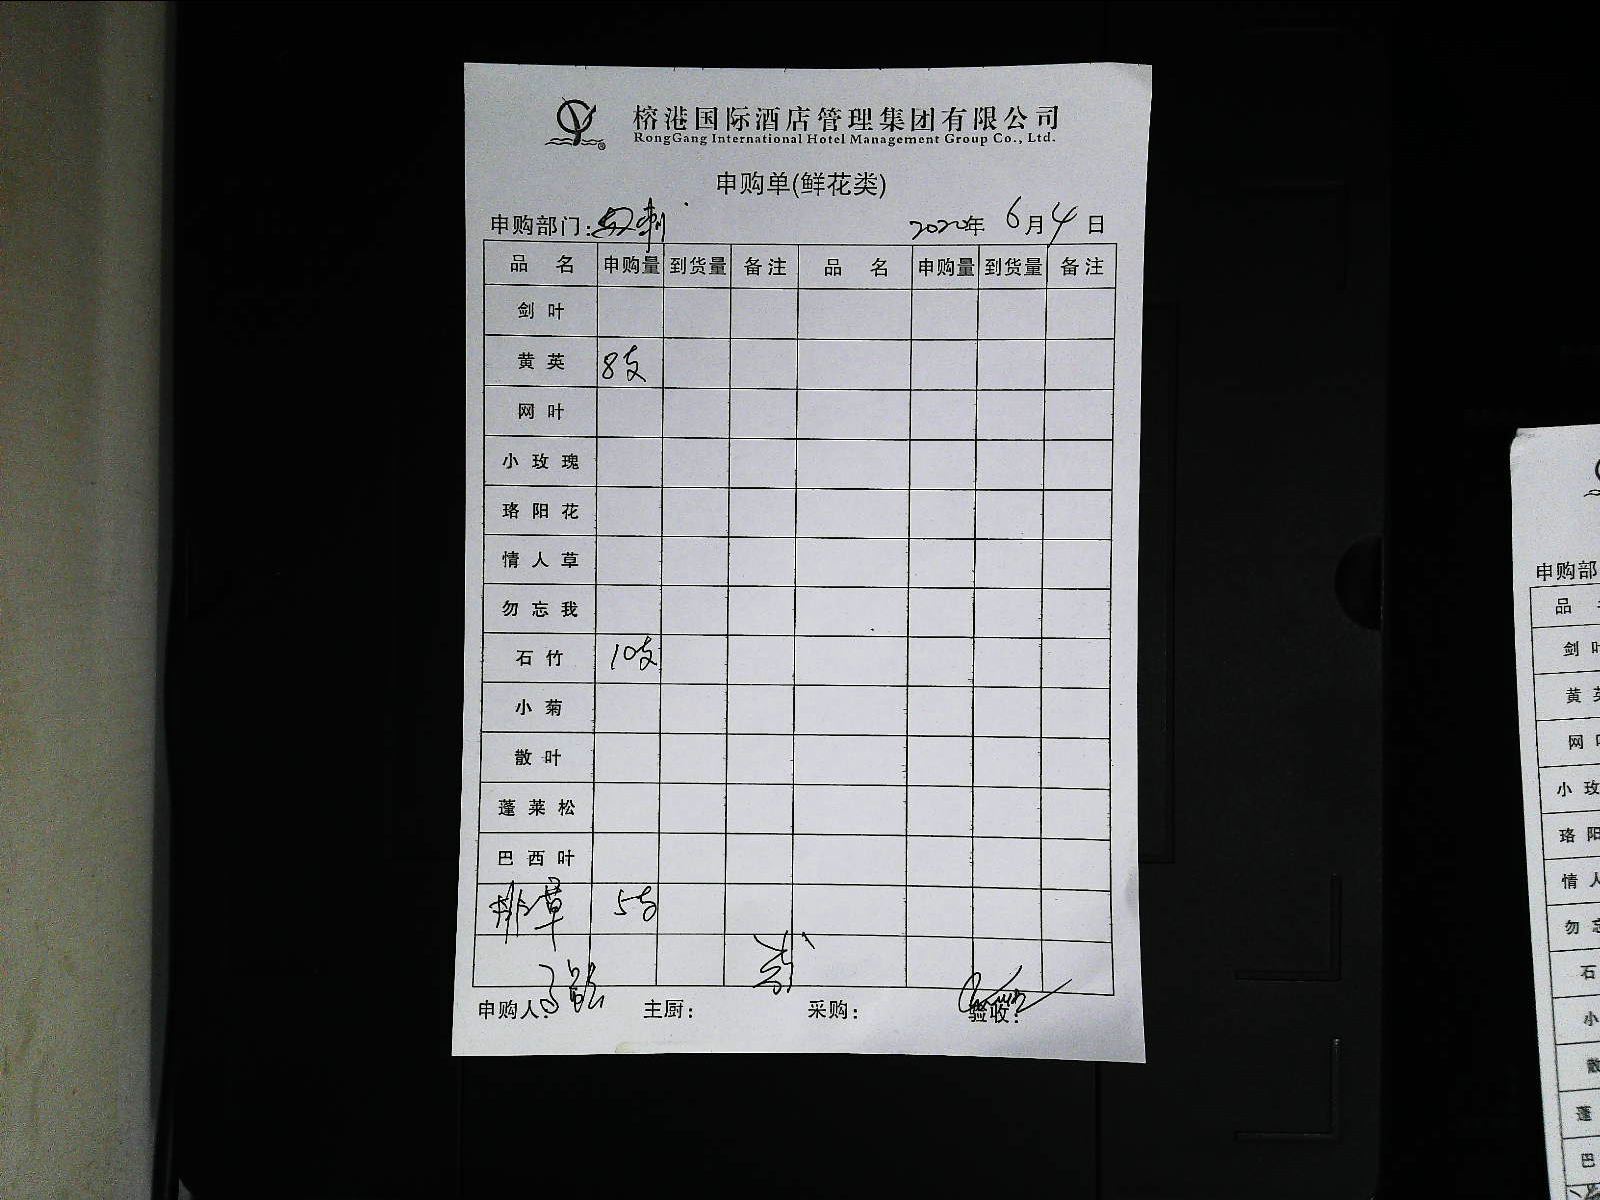 榕港国际酒店管理集团有限公司
RongGang International Hotel Management Group Co., Ltd.
申购单(鲜花类)
申购部门: 2020年 6月4日
品 名 申购量 到货量 备注 品 名 申购量 到货量 备注
剑叶
黄英 8支
网叶
小玫瑰
珞阳花
情人草
勿忘我
石竹 10支
小菊
散叶
蓬莱松
巴西叶
排草 5支
申购人: 主厨: 采购: 验收:
申购部
品
剑
黄
网
小玫
珞阳
情人
勿忘
石
小
散
蓬
巴